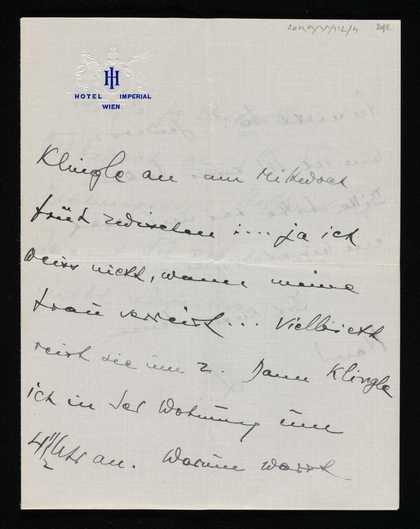 HOTEL IMPERIAL
WIEN
Klingle an am Mittwoch
früh zwischen :... ja ich
weiss nicht, wann meine
Frau verreist... Vielleicht
reist sie um 2. Dann Klingle
ich in der Wohnung um
4 1/2 Uhr an. Warum